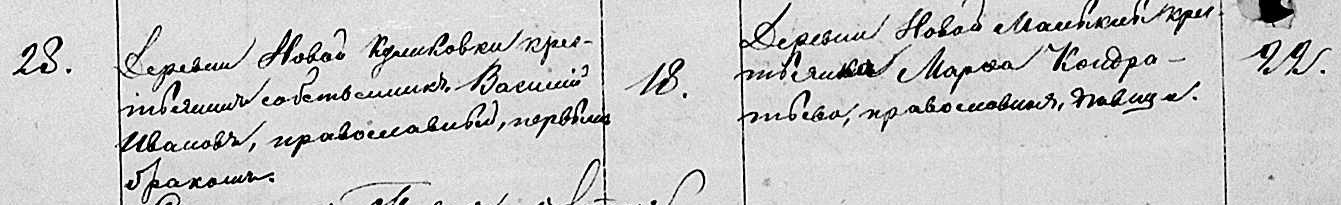 28.
Деревни Новой Куликовки кре-
стьянинъ собственникъ Василий
Ивановъ, православный, первымъ
бракомъ.
18.
Деревни Новой кре-
стьянка Марѳа Кондра-
тьева, православная, дѣвица.
22.